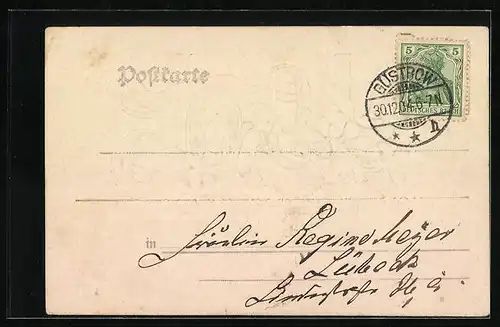 5 5
Postkarte
GÜSTROW
30.12.0 6-7N
* * h
in Fräulein Regine Meyer
Lübeck